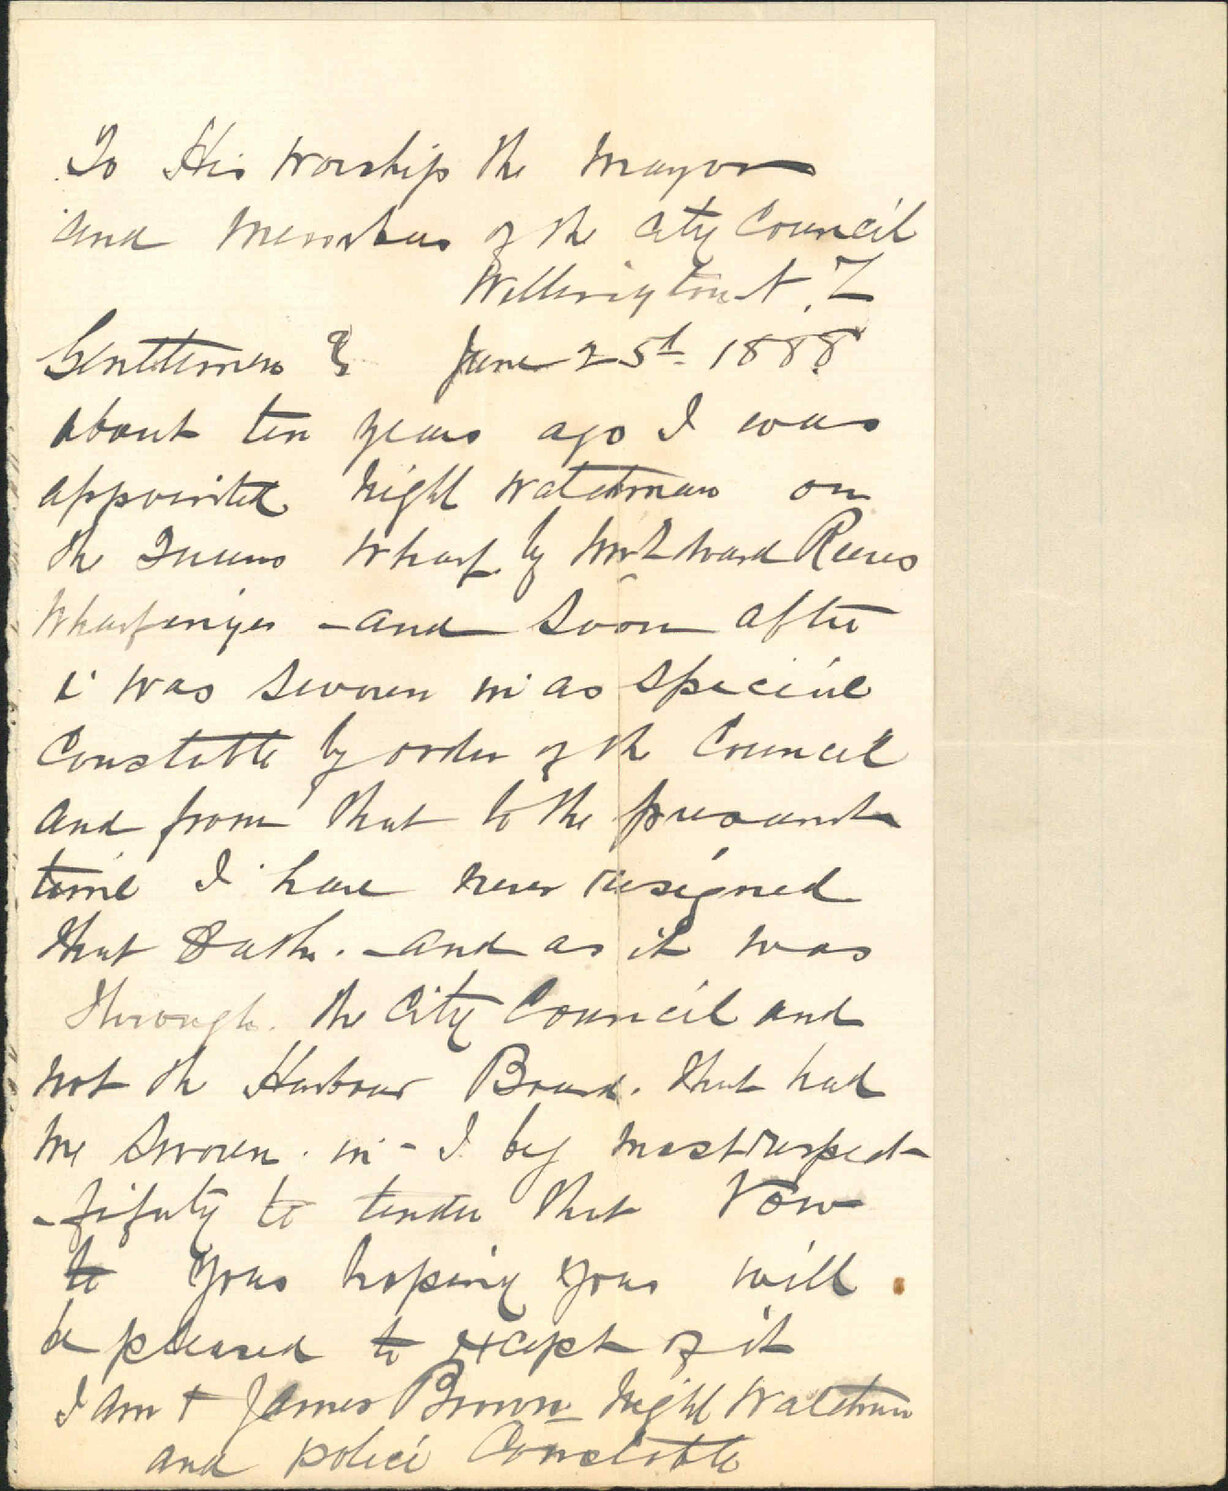 To His Worship the Mayor
and Members of the City Council
Wellington N. Z
Gentlemen June 25th 1888
about ten years ago I was
appointed Night Watchman on
the Queens Wharf by Ward Reeves
Wharfinger - and soon after
i was sworen in as special
Constable by order of the Council
and from that to the presant
time I have never resigned
that Oath. - and as it was
through. the City Council and
not the Harbour Board. that had
me sworen. in - I beg most respect
- fifuly to tender that Vow
to you hoping you will
be pleased to except of it
I am + James Brown Night Watchman
and police Constable